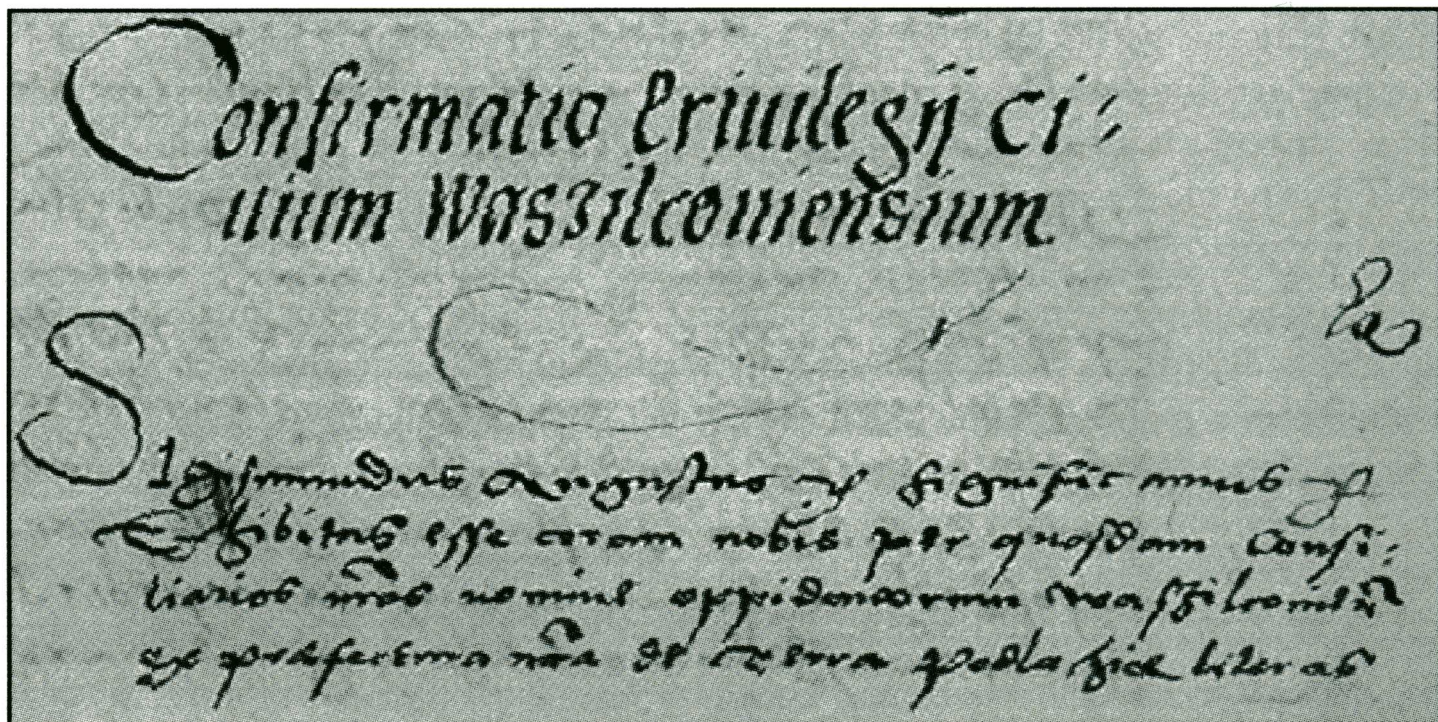 Confirmatio Priuilegij Ci-
uium Waszilcouiensium
Sigismundus Augustus significamus
Exhibitas esse coram nobis per quosdam Consi-
liarios nros nomine oppidanorum Waszilcouien
ex præfectura nra de terra Podlachiæ literas